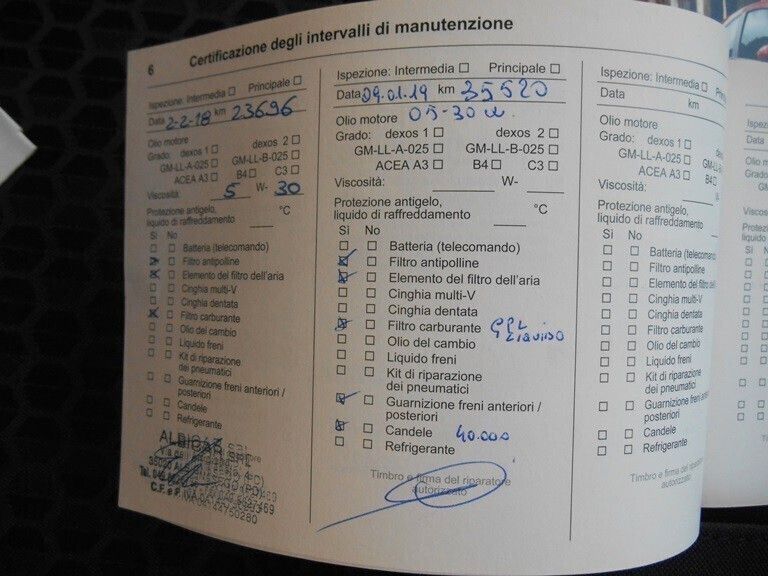 6 Certificazione degli intervalli di manutenzione
Ispezione: Intermedia Principale
Data 2-2-18 km 23696
Olio motore
Grado: dexos 1 dexos 2
GM-LL-A-025 GM-LL-B-025
ACEA A3 B4 C3
Viscosità: 5 W- 30
Protezione antigelo,
liquido di raffreddamento °C
Sì No
Batteria (telecomando)
Filtro antipolline
Elemento del filtro dell'aria
Cinghia multi-V
Cinghia dentata
Filtro carburante
Olio del cambio
Liquido freni
Kit di riparazione
dei pneumatici
Guarnizione freni anteriori /
posteriori
Candele
Refrigerante
ALBICAR SRL
Ispezione: Intermedia Principale
Data 09.01.19 km 35520
Olio motore 05-30
Grado: dexos 1 dexos 2
GM-LL-A-025 GM-LL-B-025
ACEA A3 B4 C3
Viscosità: W-
Protezione antigelo,
liquido di raffreddamento °C
Sì No
Batteria (telecomando)
Filtro antipolline
Elemento del filtro dell'aria
Cinghia multi-V
Cinghia dentata
Filtro carburante GPL
LIQUIDO
Olio del cambio
Liquido freni
Kit di riparazione
dei pneumatici
Guarnizione freni anteriori /
posteriori
Candele 40.000
Refrigerante
Timbro e firma del riparatore
autorizzato
Ispezione: Intermedia
Data km
Olio motore
Grado: dexos 1
GM-LL-A-025
ACEA A3
Viscosità:
Protezione antigelo,
liquido di raffreddamento
Sì No
Batteria (telecomando
Filtro antipolline
Elemento del filtro dell'aria
Cinghia multi-V
Cinghia dentata
Filtro carburante
Olio del cambio
Liquido freni
Kit di riparazione
dei pneumatici
Guarnizione freni anteriori
posteriori
Candele
Refrigerante
Timbro e firma del riparatore
autorizzato
Data
Olio m
Grado:
Sì